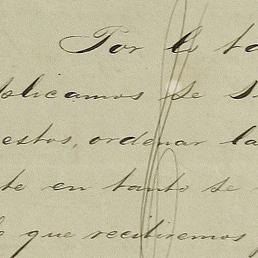 Por lo ta
plicamos se s
estos, ordenar la
te en tanto se
que recibiremos